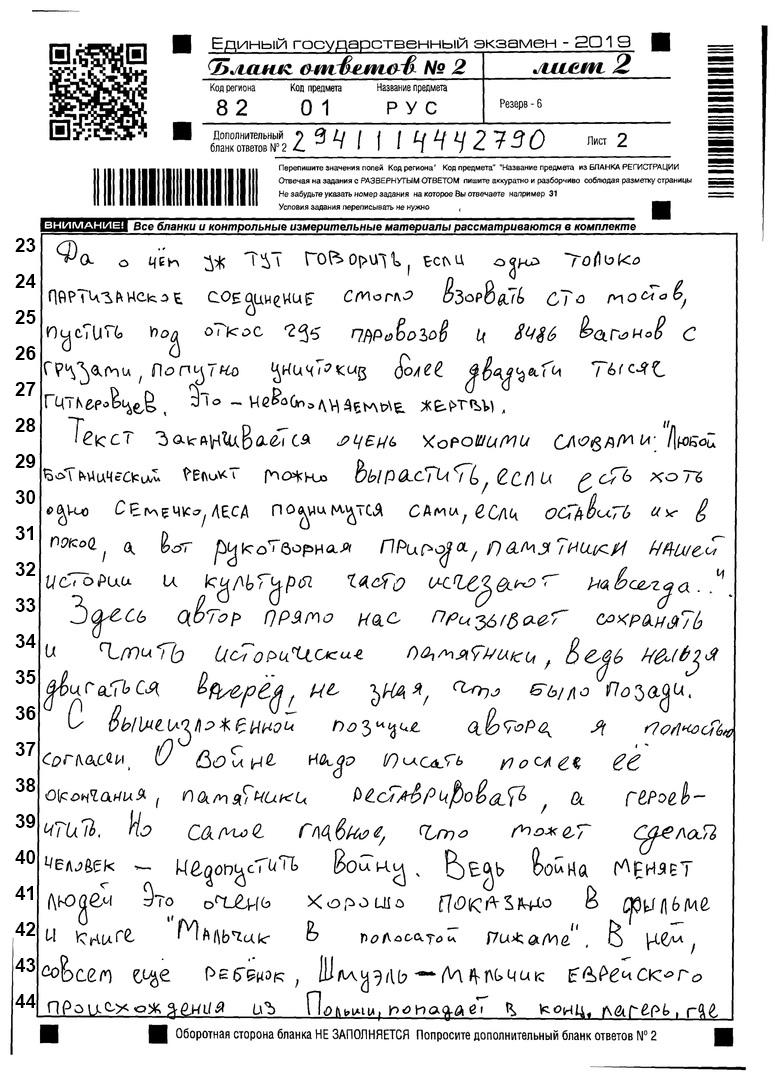 Единый государственный экзамен - 2019
Бланк ответов № 2 лист 2
Код региона Код предмета Название предмета
82 01 РУС Резерв - 6
Дополнительный
бланк ответов № 2 2941114442790 Лист 2
Перепишите значения полей Код региона" Код предмета" "Название предмета из БЛАНКА РЕГИСТРАЦИИ
Отвечая на задания с РАЗВЕРНУТЫМ ОТВЕТОМ пишите аккуратно и разборчиво соблюдая разметку страницы
Не забудьте указать номер задания на которое Вы отвечаете например 31
Условия задания переписывать не нужно
ВНИМАНИЕ! Все бланки и контрольные измерительные материалы рассматриваются в комплекте
23 Да о чём уж тут говорить, если одно только
24 партизанское соединение смогло взорвать сто мостов,
25 пустить под откос 295 паровозов и 8486 вагонов с
26 грузами, попутно уничтожив более двадцати тысяч
27 гитлеровцев. Это – невосполняемые жертвы.
28 Текст заканчивается очень хорошими словами: "Любой
29 ботанический реликт можно вырастить, если есть хоть
30 одно семечко, леса поднимутся сами, если оставить их в
31 покое, а вот рукотворная природа, памятники нашей
32 истории и культуры часто исчезают навсегда...".
33 Здесь автор прямо нас призывает сохранять
34 и чтить исторические памятники, ведь нельзя
35 двигаться вперёд, не зная, что было позади.
36 С вышеизложенной позицие автора я полностью
37 согласен. О войне надо писать после её
38 окончания, памятники реставрировать, а героев–
39 чтить. Но самое главное, что может сделать
40 человек – недопустить войну. Ведь война меняет
41 людей Это очень хорошо показано в фильме
42 и книге "Мальчик в полосатой пижаме". В ней,
43 совсем ещё ребёнок, Шмуэль – мальчик еврейского
44 происхождения из Польши, попадает в конц. лагерь, где
Оборотная сторона бланка НЕ ЗАПОЛНЯЕТСЯ Попросите дополнительный бланк ответов № 2